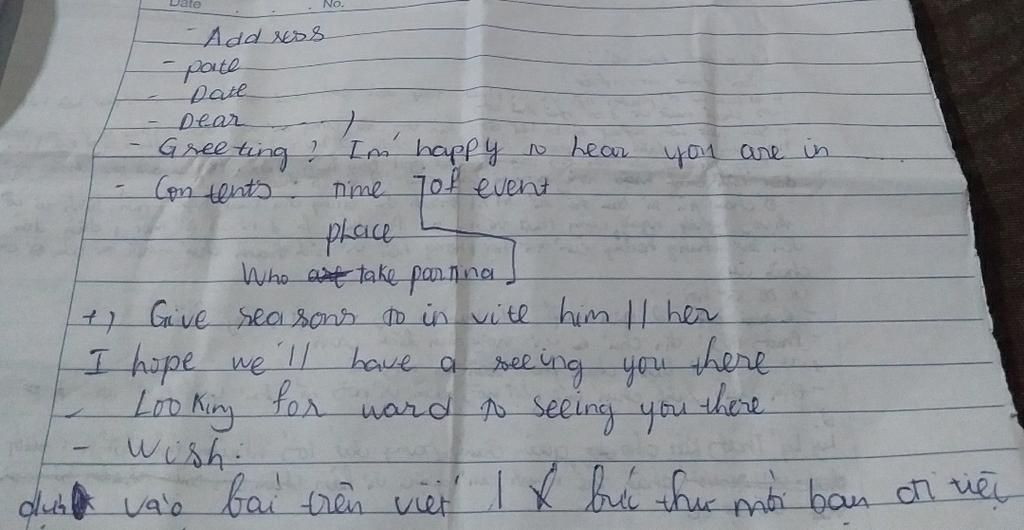 Date . . . No.
- Address
- pate
- Date
- Dear ,
- Greeting: I'm happy to hear you are in
- Contents: Time of event
place
Who take part in a
+) Give reasons to invite him || her
I hope we'll have a seeing you there
- Looking forward to seeing you there
- Wish:
vào bài trên viết 1 bức thư mời bạn đi việ